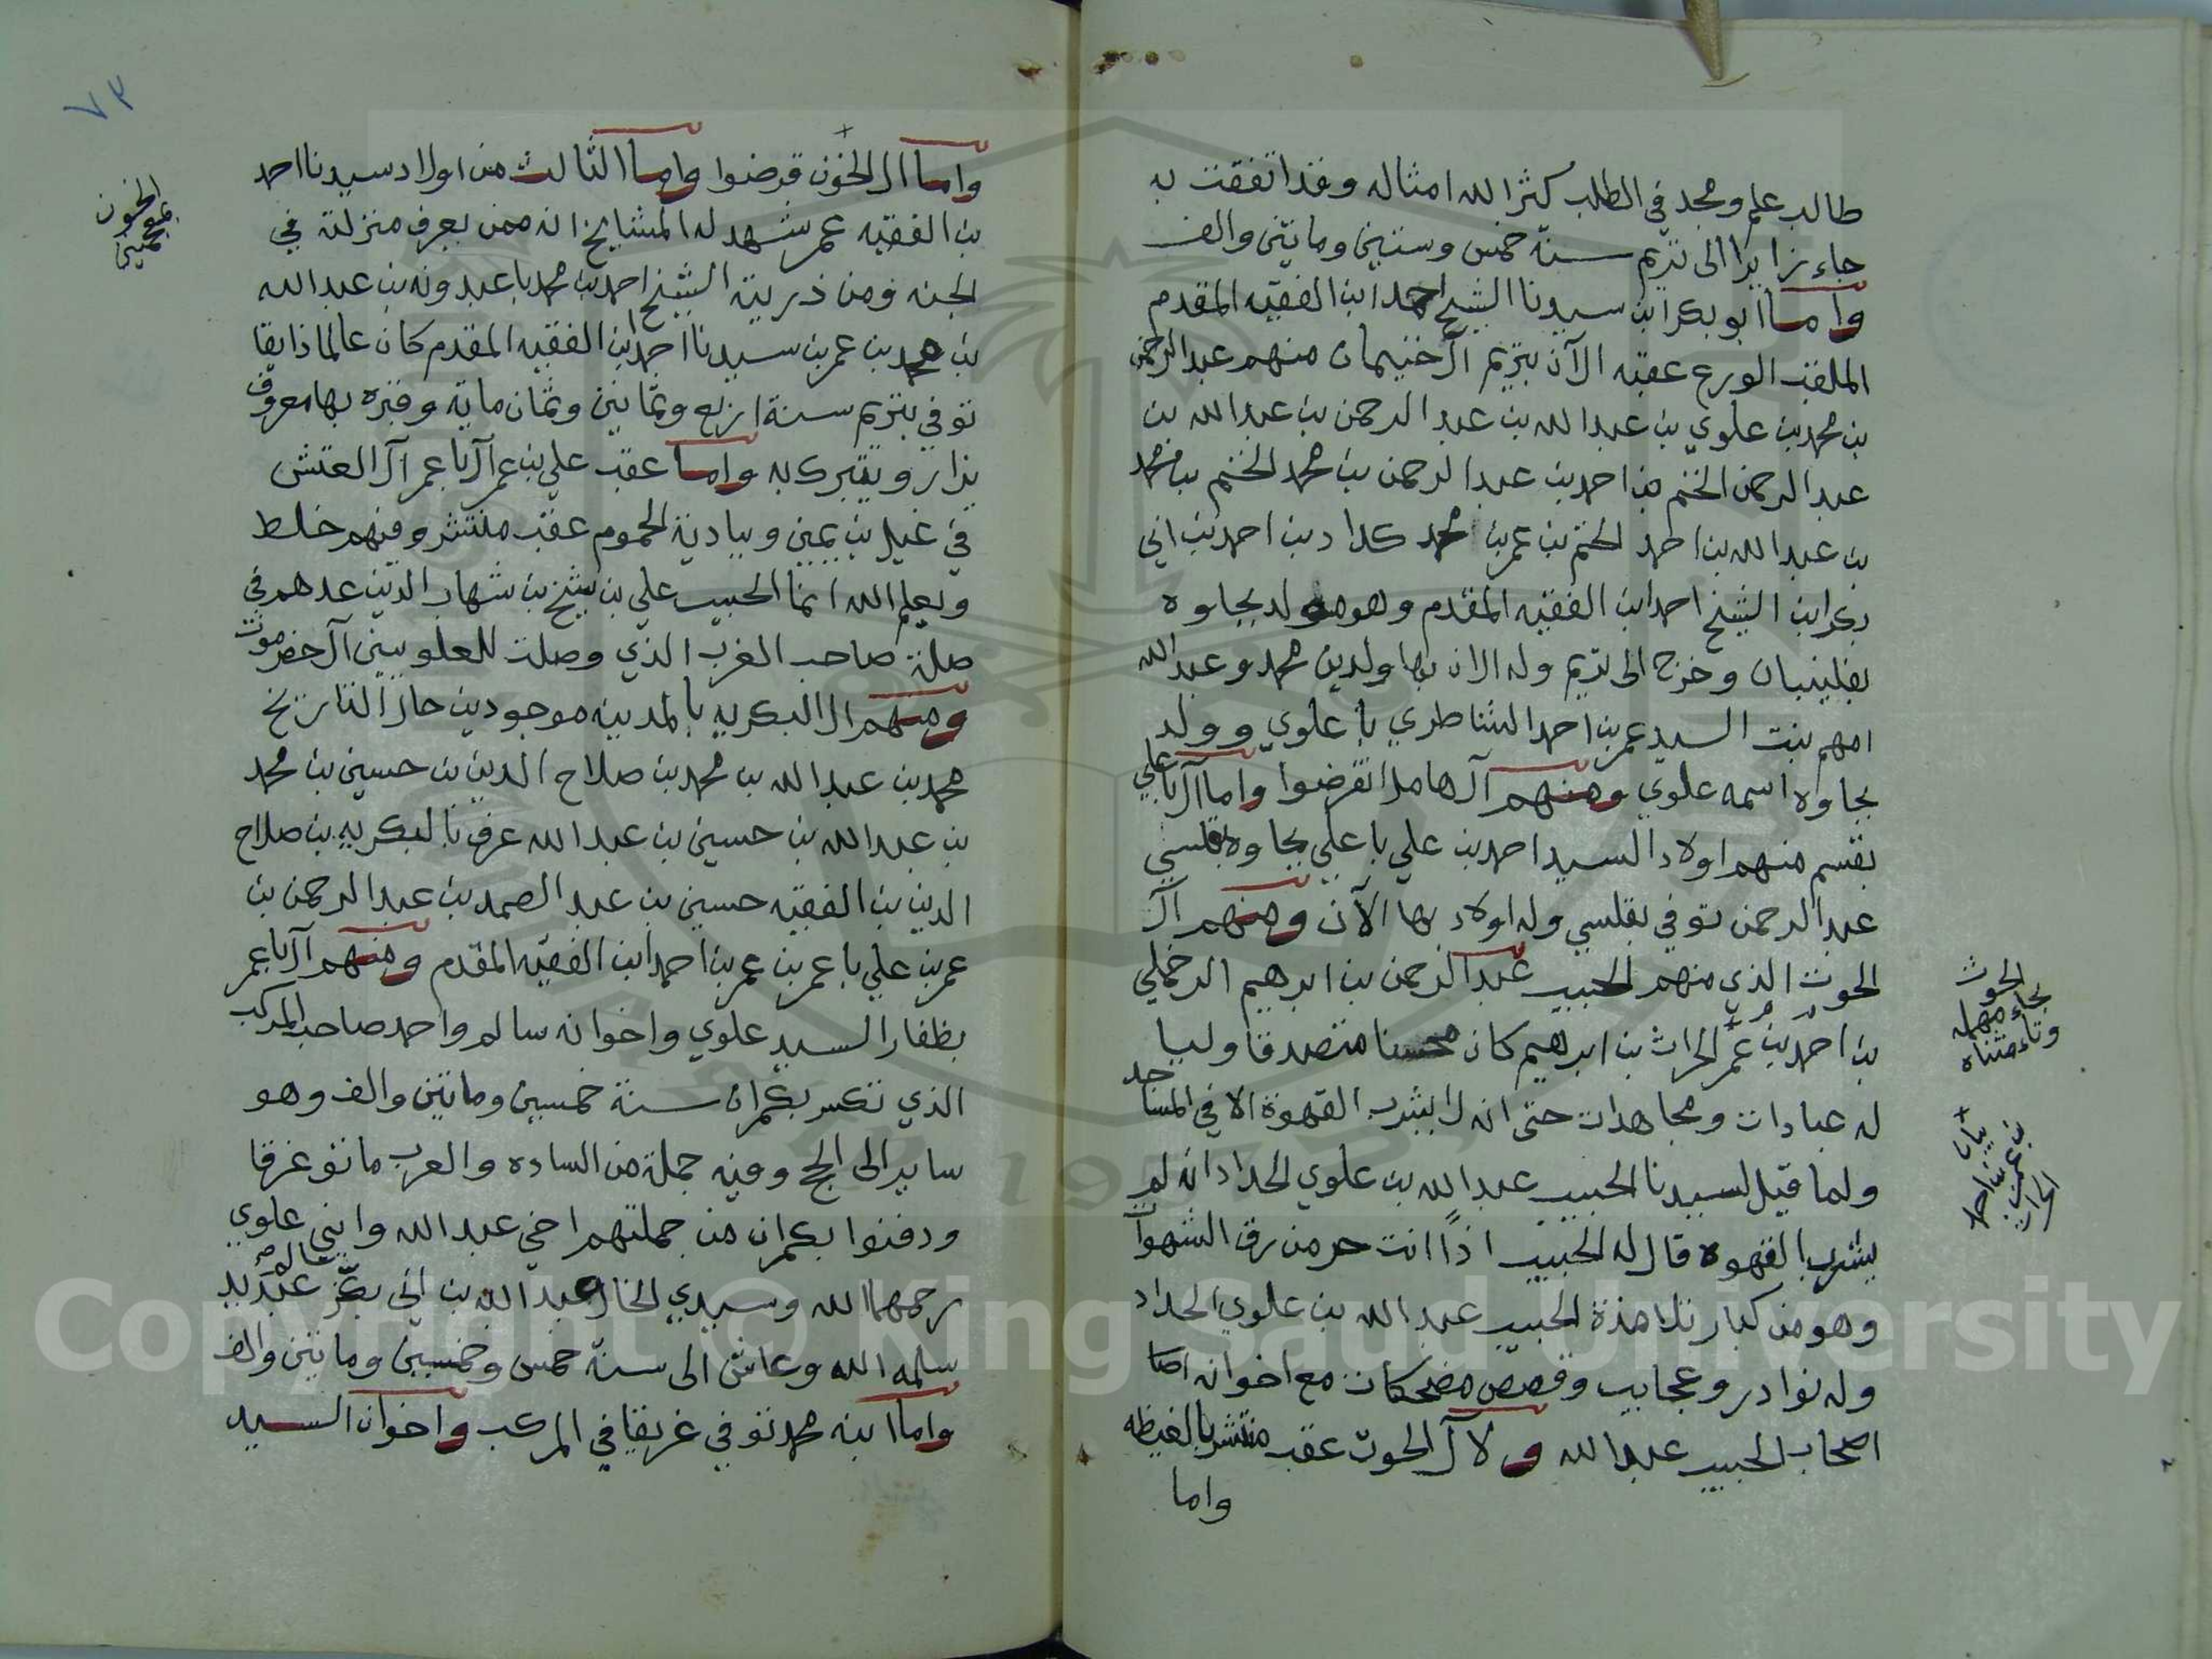 طالب علم ومجد في الطلب كثر الله امثاله وقد اتفقت به
جاء زايرا الى تريم سنة خمس وستين وماتين والف
واما ابو بكر ابن سيدنا الشيخ احمد ابن الفقيه المقدم
الملقب الورع عقبه الآن بتريم آل خنيمان منهم عبد الرحمن
بن محمد بن علوي بن عبد الله بن عبد الرحمن بن عبد الله بن
عبد الرحمن الخنم بن احمد بن عبد الرحمن بن محمد الخنم بن محمد
بن عبد الله بن احمد الخنم بن عمر بن محمد كداد بن احمد بن ابي
بكر ابن الشيخ احمد ابن الفقيه المقدم وهو مولد بجاوه
بفلينبان وخرج الى تريم وله الان بها ولدين محمد وعبد الله
امهم بنت السيد عمر بن احمد الشاطري باعلوي وولد
بجاوه اسمه علوي ومنهم آل هامل انقرضوا واما آل باعلي
بقسم منهم اولاد السيد احمد بن علي باعلي بجاوه بقلسي
عبد الرحمن توفي بقلسي وله اولاد بها الآن ومنهم آل
الحوت الذي منهم الحبيب عبد الرحمن بن ابرهيم الرخملي
بن احمد بن عمر الحراث بن ابرهيم كان محسنا متصدقا وليا
له عبادات ومجاهدات حتى انه لا يشرب القهوة الا في المساجد
ولما قيل لسيدنا الحبيب عبد الله بن علوي الحداد انه لم
يشرب القهوه قال له الحبيب اذاً انت حر من رق الشهوآ
وهو من كبار تلامذة الحبيب عبد الله بن علوي الحداد
وله نوادر وعجايب وقصص مضحكات مع اخوانه
اصحاب الحبيب عبد الله ولآل الحوت عقب منتشر بالغيظه
واما
الحوت
بحاء مهمله
وتاء مثناه
بن عمر بن احمد
٧٣
واما ال الخون قرضوا واما الثالث من اولاد سيدنا احمد
بن الفقيه عمر شهد له المشايخ انه ممن يعرف منزلته في
الجنه ومن ذريته الشيخ احمد بن محمد باعبدونه بن عبد الله
بن محمد بن عمر بن سيدنا احمد ابن الفقيه المقدم كان عالما ذايقا
توفي بتريم سنة اربع وثمانين وثمان ماية وقبره بها معروف
يزار ويتبرك به واما عقب علي بن عمر آل باعمر آل العتش
في غيل بن يمين وبادية الحموم عقب منتشر ومنهم خلط
ويعلم الله انما الحبيب علي بن شيخ بن شهاب الدين عدهم في
صلة صاحب الغرب الذي وصلت للعلويين آل حضرموت
ومنهم ال البكريه بالمدينه موجودين حال التاريخ
محمد بن عبد الله بن محمد بن صلاح الدين بن حسين بن محمد
بن عبد الله بن حسين بن عبد الله عرف بالبكريه بن صلاح
الدين بن الفقيه حسين بن عبد الصمد بن عبد الرحمن بن
عمر بن علي باعمر بن عمر بن احمد ابن الفقيه المقدم ومنهم آل باعمر
بظفار السيد علوي واخوانه سالم واحمد صاحب المركب
الذي تكسر بكمران سنة خمسين وماتين والف وهو
ساير الى الحج وفيه جملة من الساده والعرب ماتو غرقا
ودفنوا بكمران من جملتهم اخي عبد الله وابني علوي
رحمهما الله وسيدي الخال عبد الله بن ابي بكر عيديد
سلمه الله وعاش الى سنة خمس وخمسين وماتين والف
واما ابنه محمد توفي غريقا في المركب واخوان السيد
الخون
بمعجمتين
Copyright © King Saud University